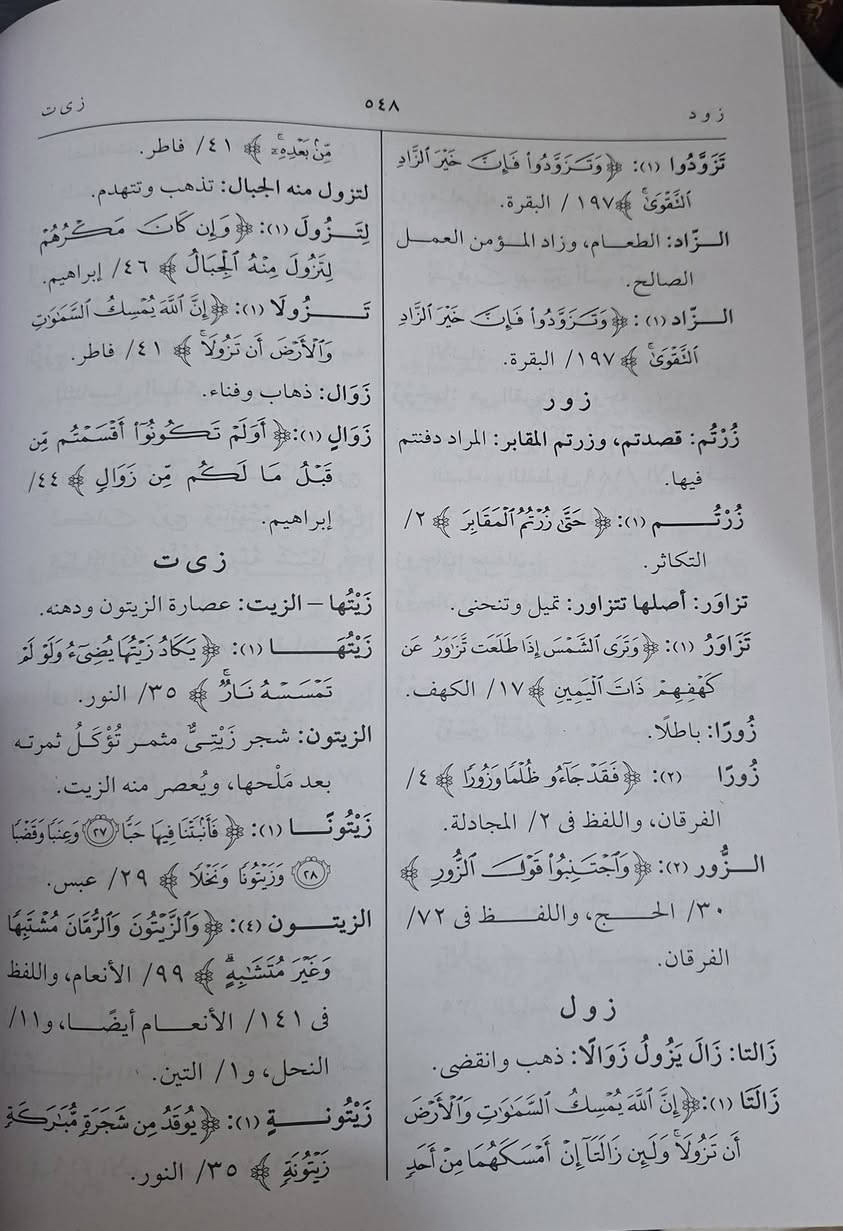 زود
٥٤٨
زىت
تَزَوَّدُوا (١): ﴿ وَتَزَوَّدُوا۟ فَإِنَّ خَيْرَ ٱلزَّادِ
ٱلتَّقْوَىٰ ﴾ ١٩٧/ البقرة.
الـزَّاد: الطعـام، وزاد المـؤمن العمـل
الصالح.
الـزَّاد (١): ﴿ وَتَزَوَّدُوا۟ فَإِنَّ خَيْرَ ٱلزَّادِ
ٱلتَّقْوَىٰ ﴾ ١٩٧/ البقرة.
زور
زُرْتُم: قصدتم، وزرتم المقابر: المراد دفنتم
فيها.
زُرْتُــــــم (١): ﴿ حَتَّىٰ زُرْتُمُ ٱلْمَقَابِرَ ﴾ ٢/
التكاثر.
تزاوَر: أصلها تتزاور: تميل وتنحنى.
تَزَاوَرُ (١): ﴿ وَتَرَى ٱلشَّمْسَ إِذَا طَلَعَت تَّزَٰوَرُ عَن
كَهْفِهِمْ ذَاتَ ٱلْيَمِينِ ﴾ ١٧/ الكهف.
زُورًا: باطلًا.
زُورًا (٢): ﴿ فَقَدْ جَآءُو ظُلْمًا وَزُورًا ﴾ ٤/
الفرقان، واللفظ فى ٢/ المجادلة.
الـزُّور (٢): ﴿ وَٱجْتَنِبُوا۟ قَوْلَ ٱلزُّورِ ﴾
٣٠/ الحـــج، واللفـــظ فى ٧٢/
الفرقان.
زول
زَالتا: زَالَ يَزُولُ زَوَالًا: ذهب وانقضى.
زَالَتَا (١): ﴿ إِنَّ ٱللَّهَ يُمْسِكُ ٱلسَّمَٰوَٰتِ وَٱلْأَرْضَ
أَن تَزُولَا ۚ وَلَئِن زَالَتَآ إِنْ أَمْسَكَهُمَا مِنْ أَحَدٍ
مِّنۢ بَعْدِهِۦٓ ۚ ﴾ ٤١/ فاطر.
لتزول منه الجبال: تذهب وتتهدم.
لِتَـزُولَ (١): ﴿ وَإِن كَانَ مَكْرُهُمْ
لِتَزُولَ مِنْهُ ٱلْجِبَالُ ﴾ ٤٦/ إبراهيم.
تَــــزُولَا (١): ﴿ إِنَّ ٱللَّهَ يُمْسِكُ ٱلسَّمَٰوَٰتِ
وَٱلْأَرْضَ أَن تَزُولَا ۚ ﴾ ٤١/ فاطر.
زَوَال: ذهاب وفناء.
زَوَالٍ (١): ﴿ أَوَلَمْ تَكُونُوٓا۟ أَقْسَمْتُم مِّن
قَبْلُ مَا لَكُم مِّن زَوَالٍ ﴾ ٤٤/
إبراهيم.
زىت
زَيْتُها – الزيت: عصارة الزيتون ودهنه.
زَيْتُهَـــــا (١): ﴿ يَكَادُ زَيْتُهَا يُضِىٓءُ وَلَوْ لَمْ
تَمْسَسْهُ نَارٌ ۚ ﴾ ٣٥/ النور.
الزيتون: شجر زَيْتِىٌّ مثمر تُؤْكَلُ ثمرته
بعد مَلْحها، ويُعصر منه الزيت.
زَيْتُونًــا (١): ﴿ فَأَنۢبَتْنَا فِيهَا حَبًّا ٢٧ وَعِنَبًا وَقَضْبًا
٢٨ وَزَيْتُونًا وَنَخْلًا ﴾ ٢٩/ عبس.
الزيتـــون (٤): ﴿ وَٱلزَّيْتُونَ وَٱلرُّمَّانَ مُشْتَبِهًا
وَغَيْرَ مُتَشَٰبِهٍ ۗ ﴾ ٩٩/ الأنعام، واللفظ
فى ١٤١/ الأنعـــام أيضًــا، و١١/
النحل، و١/ التين.
زَيْتُونـــةٍ (١): ﴿ يُوقَدُ مِن شَجَرَةٍ مُّبَٰرَكَةٍ
زَيْتُونَةٍ ﴾ ٣٥/ النور.